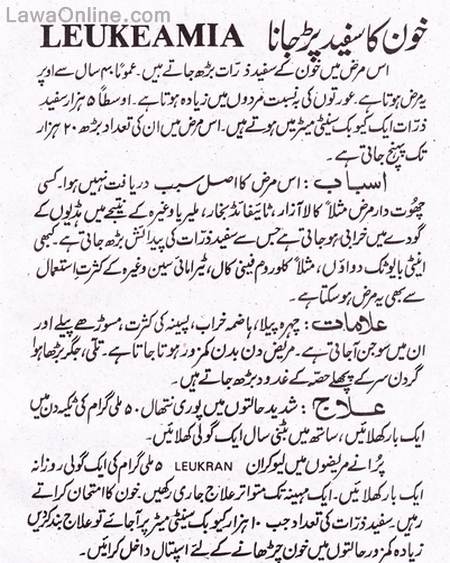 LawaOnline.com
خون کا سفید پڑ جانا LEUKEAMIA
اس مرض میں خون کے سفید ذرّات بڑھ جاتے ہیں۔ عموماً ۴۰ سال سے اوپر
یہ مرض ہوتا ہے۔ عورتوں کی نسبت مردوں میں زیادہ ہوتا ہے۔ اوسطاً ۵ ہزار سفید
ذرّات ایک کیوبک سنیٹی میٹر میں ہوتے ہیں۔ اس مرض میں ان کی تعداد بڑھ ۲۰ ہزار
تک پہنچ جاتی ہے۔
اسباب: اس مرض کا اصل سبب دریافت نہیں ہوا۔ کسی
چھوت دار مرض مثلاً کالا آزار، ٹائیفائڈ بخار، ملیریا وغیرہ کے نتیجے میں ہڈیوں کے
گودے میں خرابی ہو جاتی ہے جس سے سفید ذرّات کی پیدائش بڑھ جاتی ہے۔ کبھی
اینٹی بایوٹک دواؤں، مثلاً کلوروم فینی کال، ٹیرامائی سین وغیرہ کے کثرتِ استعمال
سے بھی یہ مرض ہو سکتا ہے۔
علامات: چہرہ پیلا، ہاضمہ خراب، پسینہ کی کثرت، مسوڑھے پیلے اور
ان میں سوجن آجاتی ہے۔ مریض دن بدن کمزور ہوتا جاتا ہے۔ تلّی، جگر بڑھا ہوا
گردن سر کے پچھلے حصّہ کے غدود بڑھ جاتے ہیں۔
علاج: شدید حالتوں میں پوری نتھال ۵۰ ملی گرام کی ٹکیہ دن میں
ایک بار کھلائیں، ساتھ میں بٹنی سال ایک گولی کھلائیں۔
پرانے مریضوں میں لیوکران LEUKRAN ۵ ملی گرام کی ایک گولی روزانہ
ایک بار کھلائیں۔ ایک مہینہ تک متواتر علاج جاری رکھیں۔ خون کا امتحان کراتے
رہیں۔ سفید ذرّات کی تعداد جب ۱۰ ہزار کیوبک سنیٹی میٹر پر آجائے تو علاج بند کر دیں
زیادہ کمزور حالتوں میں خون چڑھانے کے لئے اسپتال داخل کرائیں۔